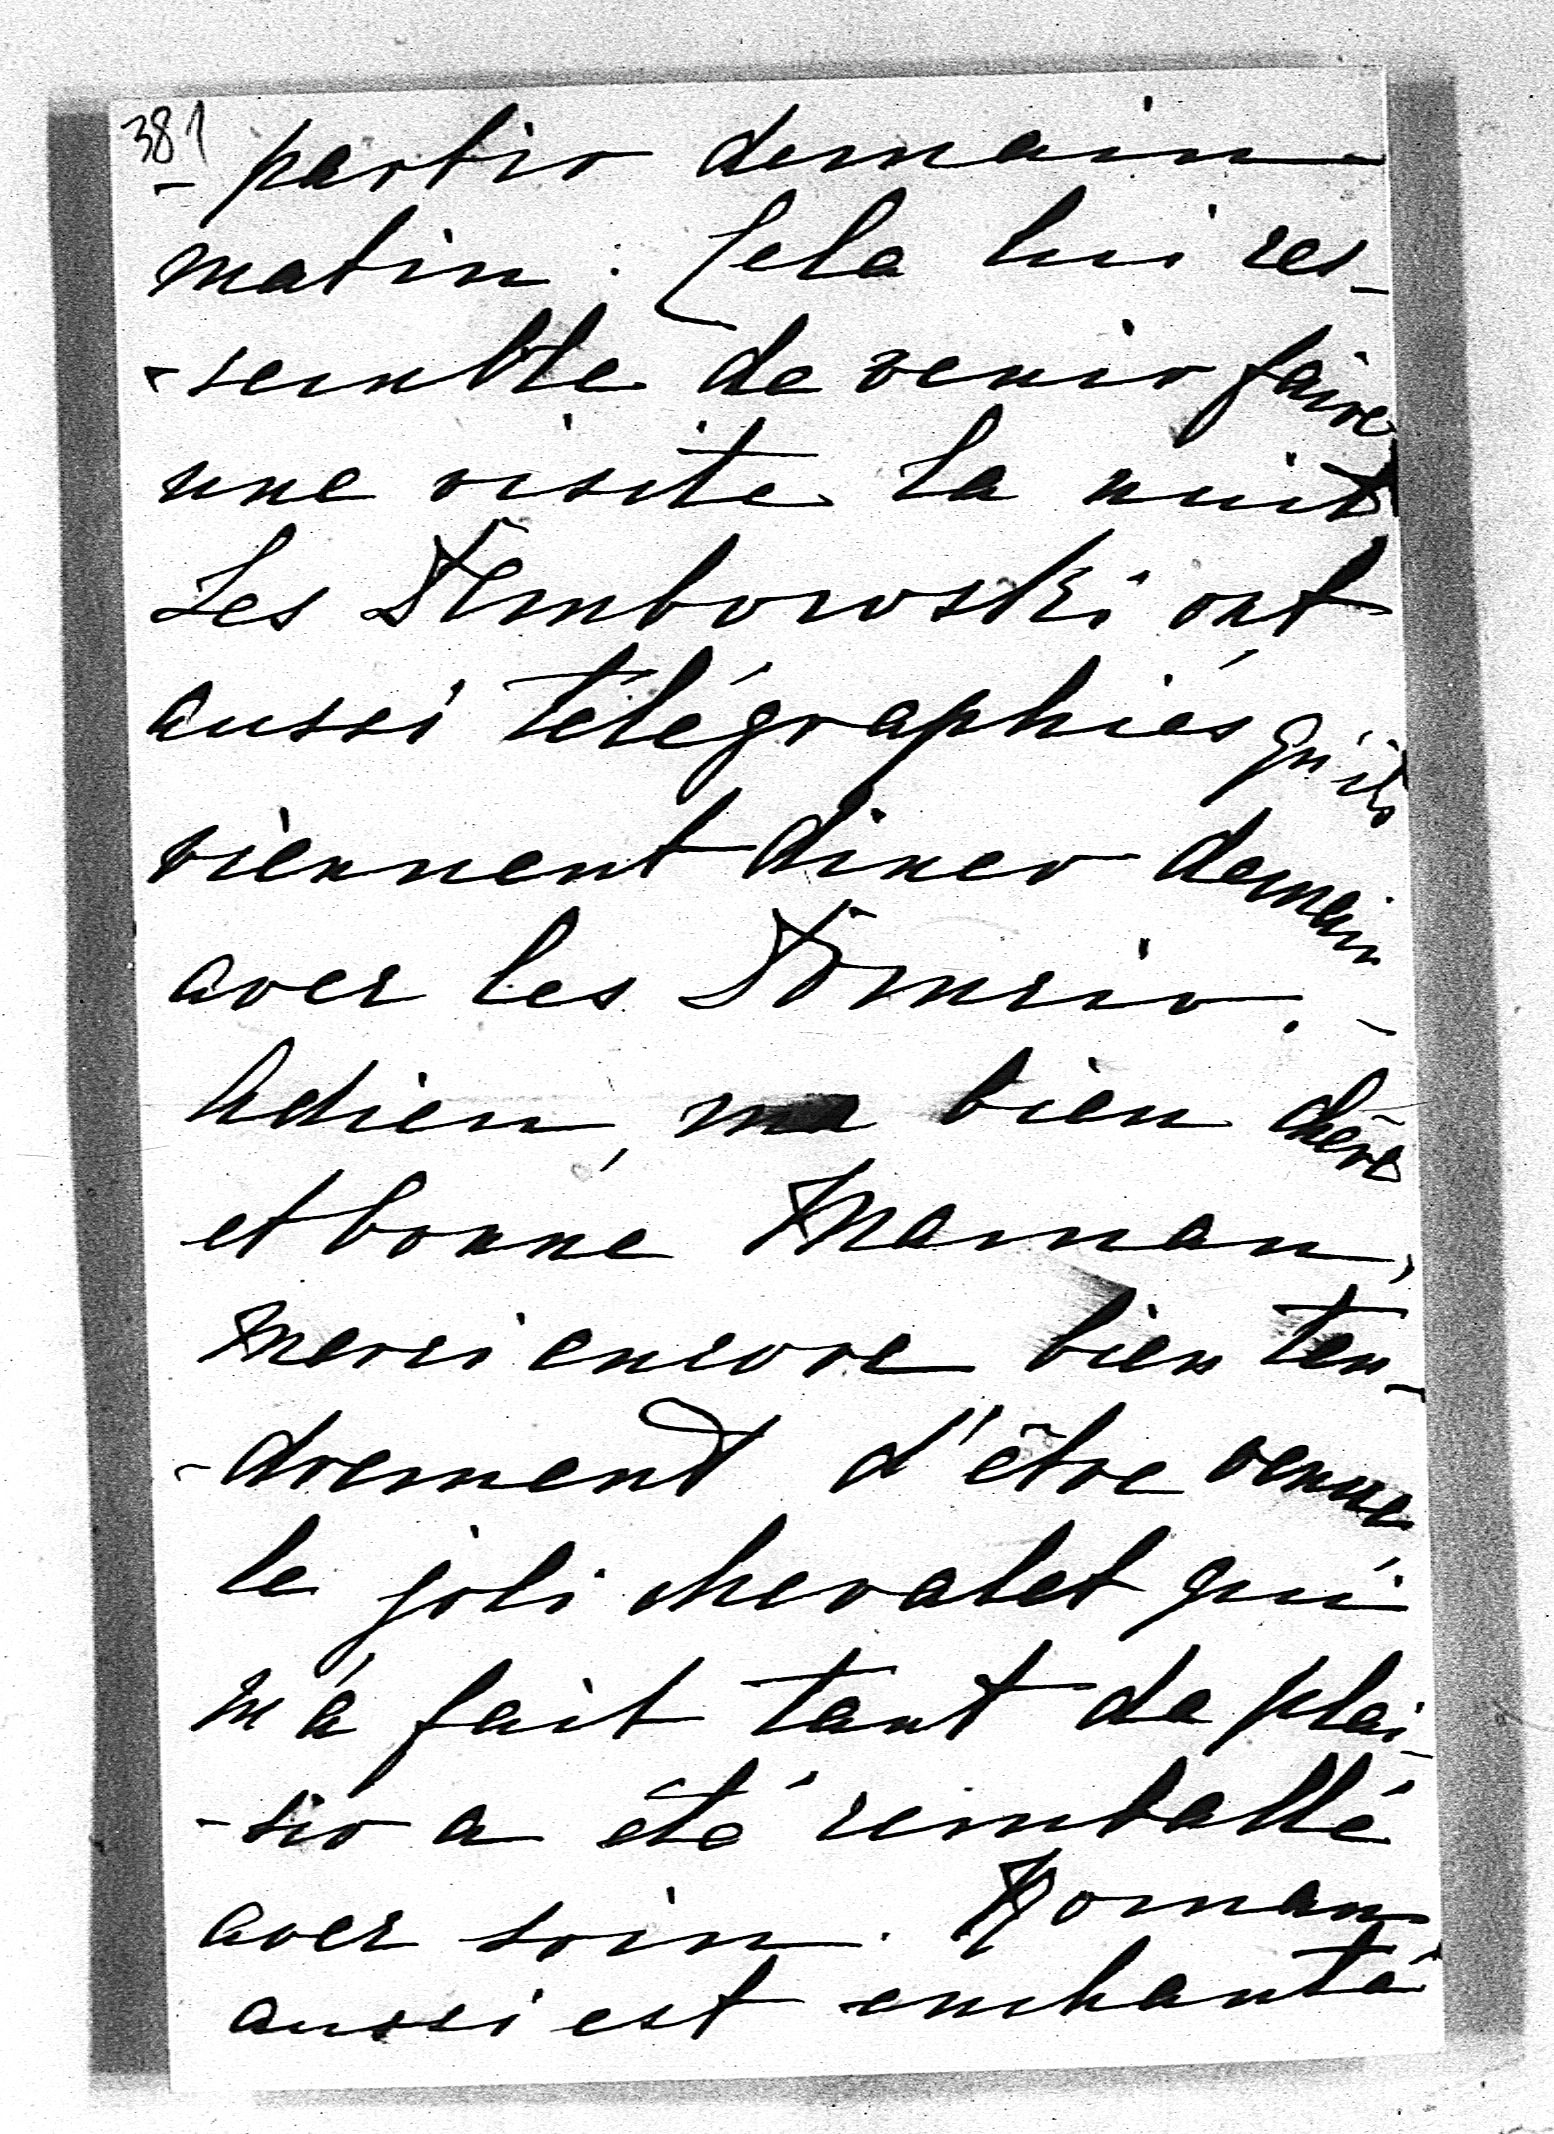 381
-partir demain
matin. Cela lui res-
-semble de venir faire
une visite la nuit
Les Dembowski ont
aussi télégraphiés qu'ils
viennent diner demain
avec les
Adieu, ma bien chère
et bonne Maman,
merci encore bien ten-
-drement d'être venue
le joli chevalet qui
m'a fait tant de plai-
-sir a été remballé
avec soin. Roman
aussi est enchanté